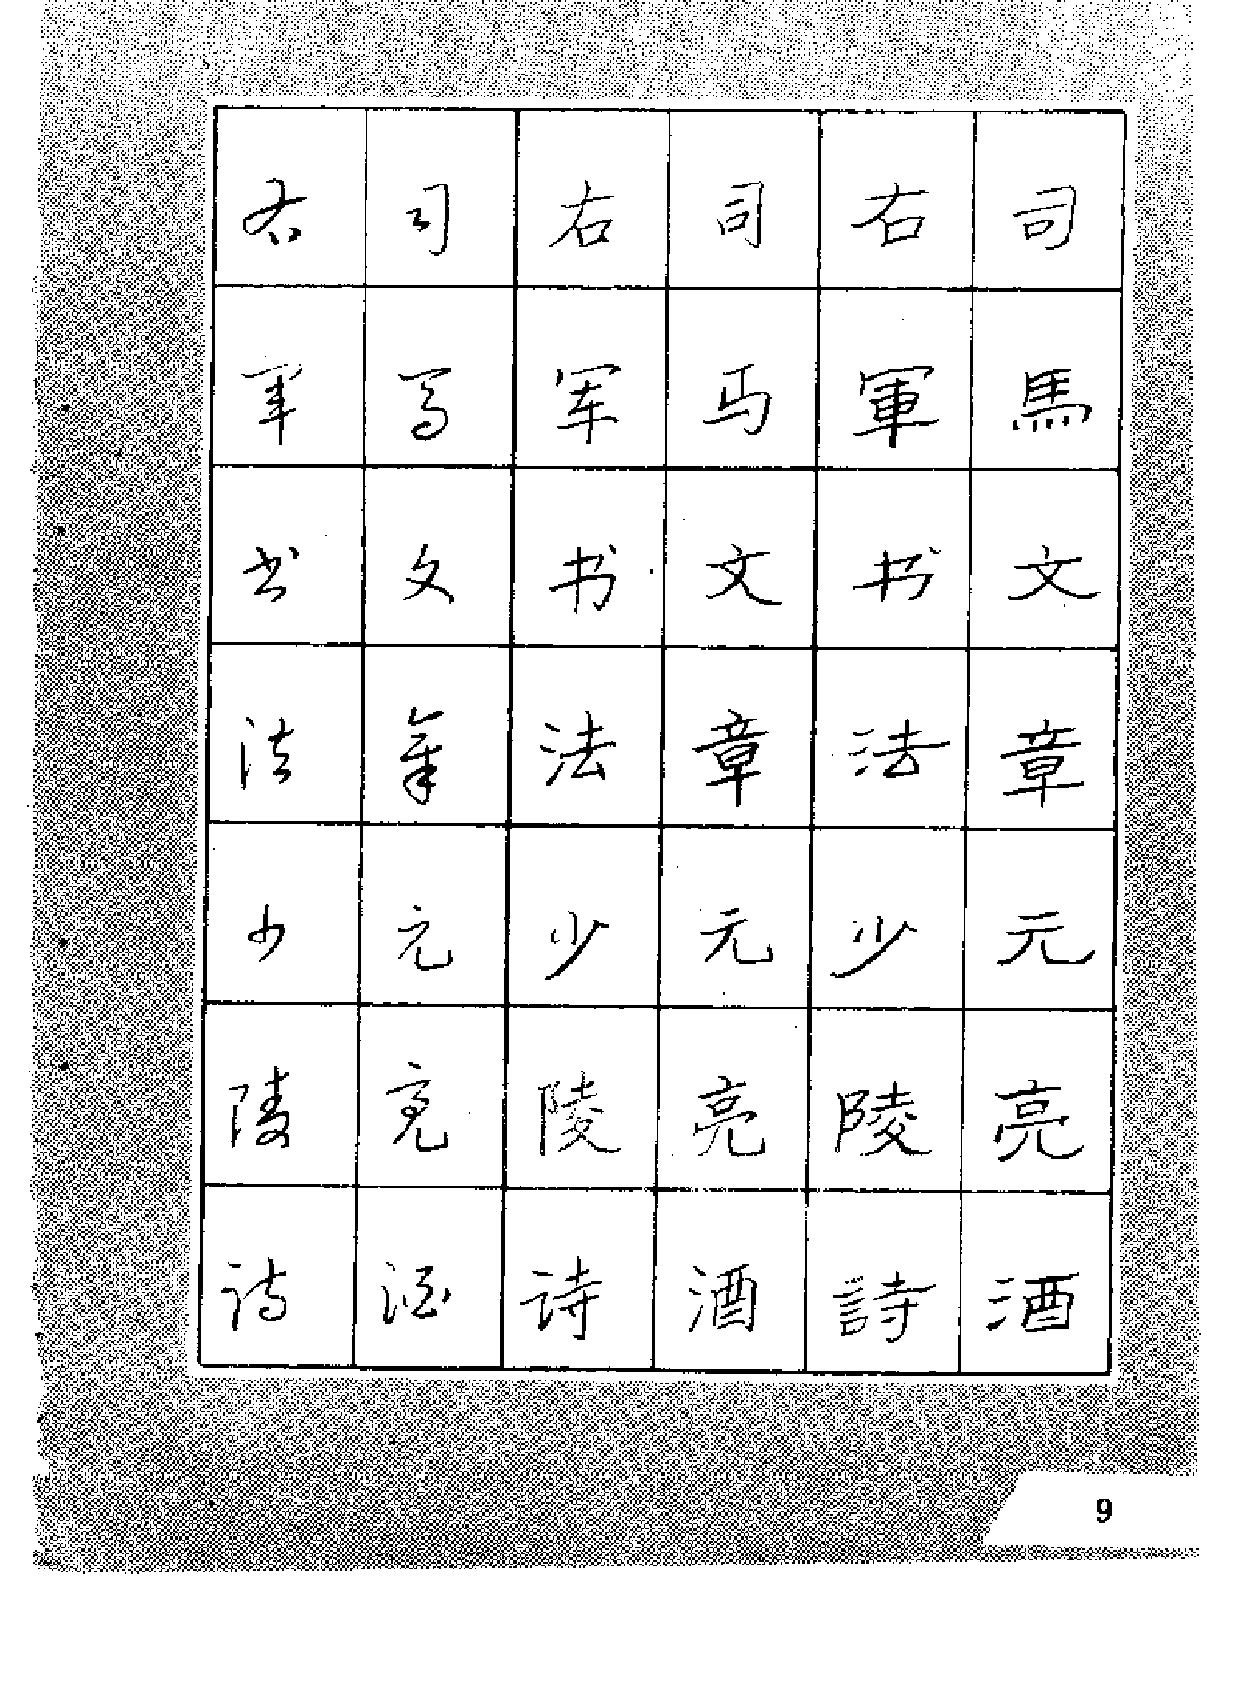 司馬文章元亮酒
右軍书法少陵詩
司马文章元亮酒
右军书法少陵诗
司马文章元亮酒
右军书法少陵诗
9